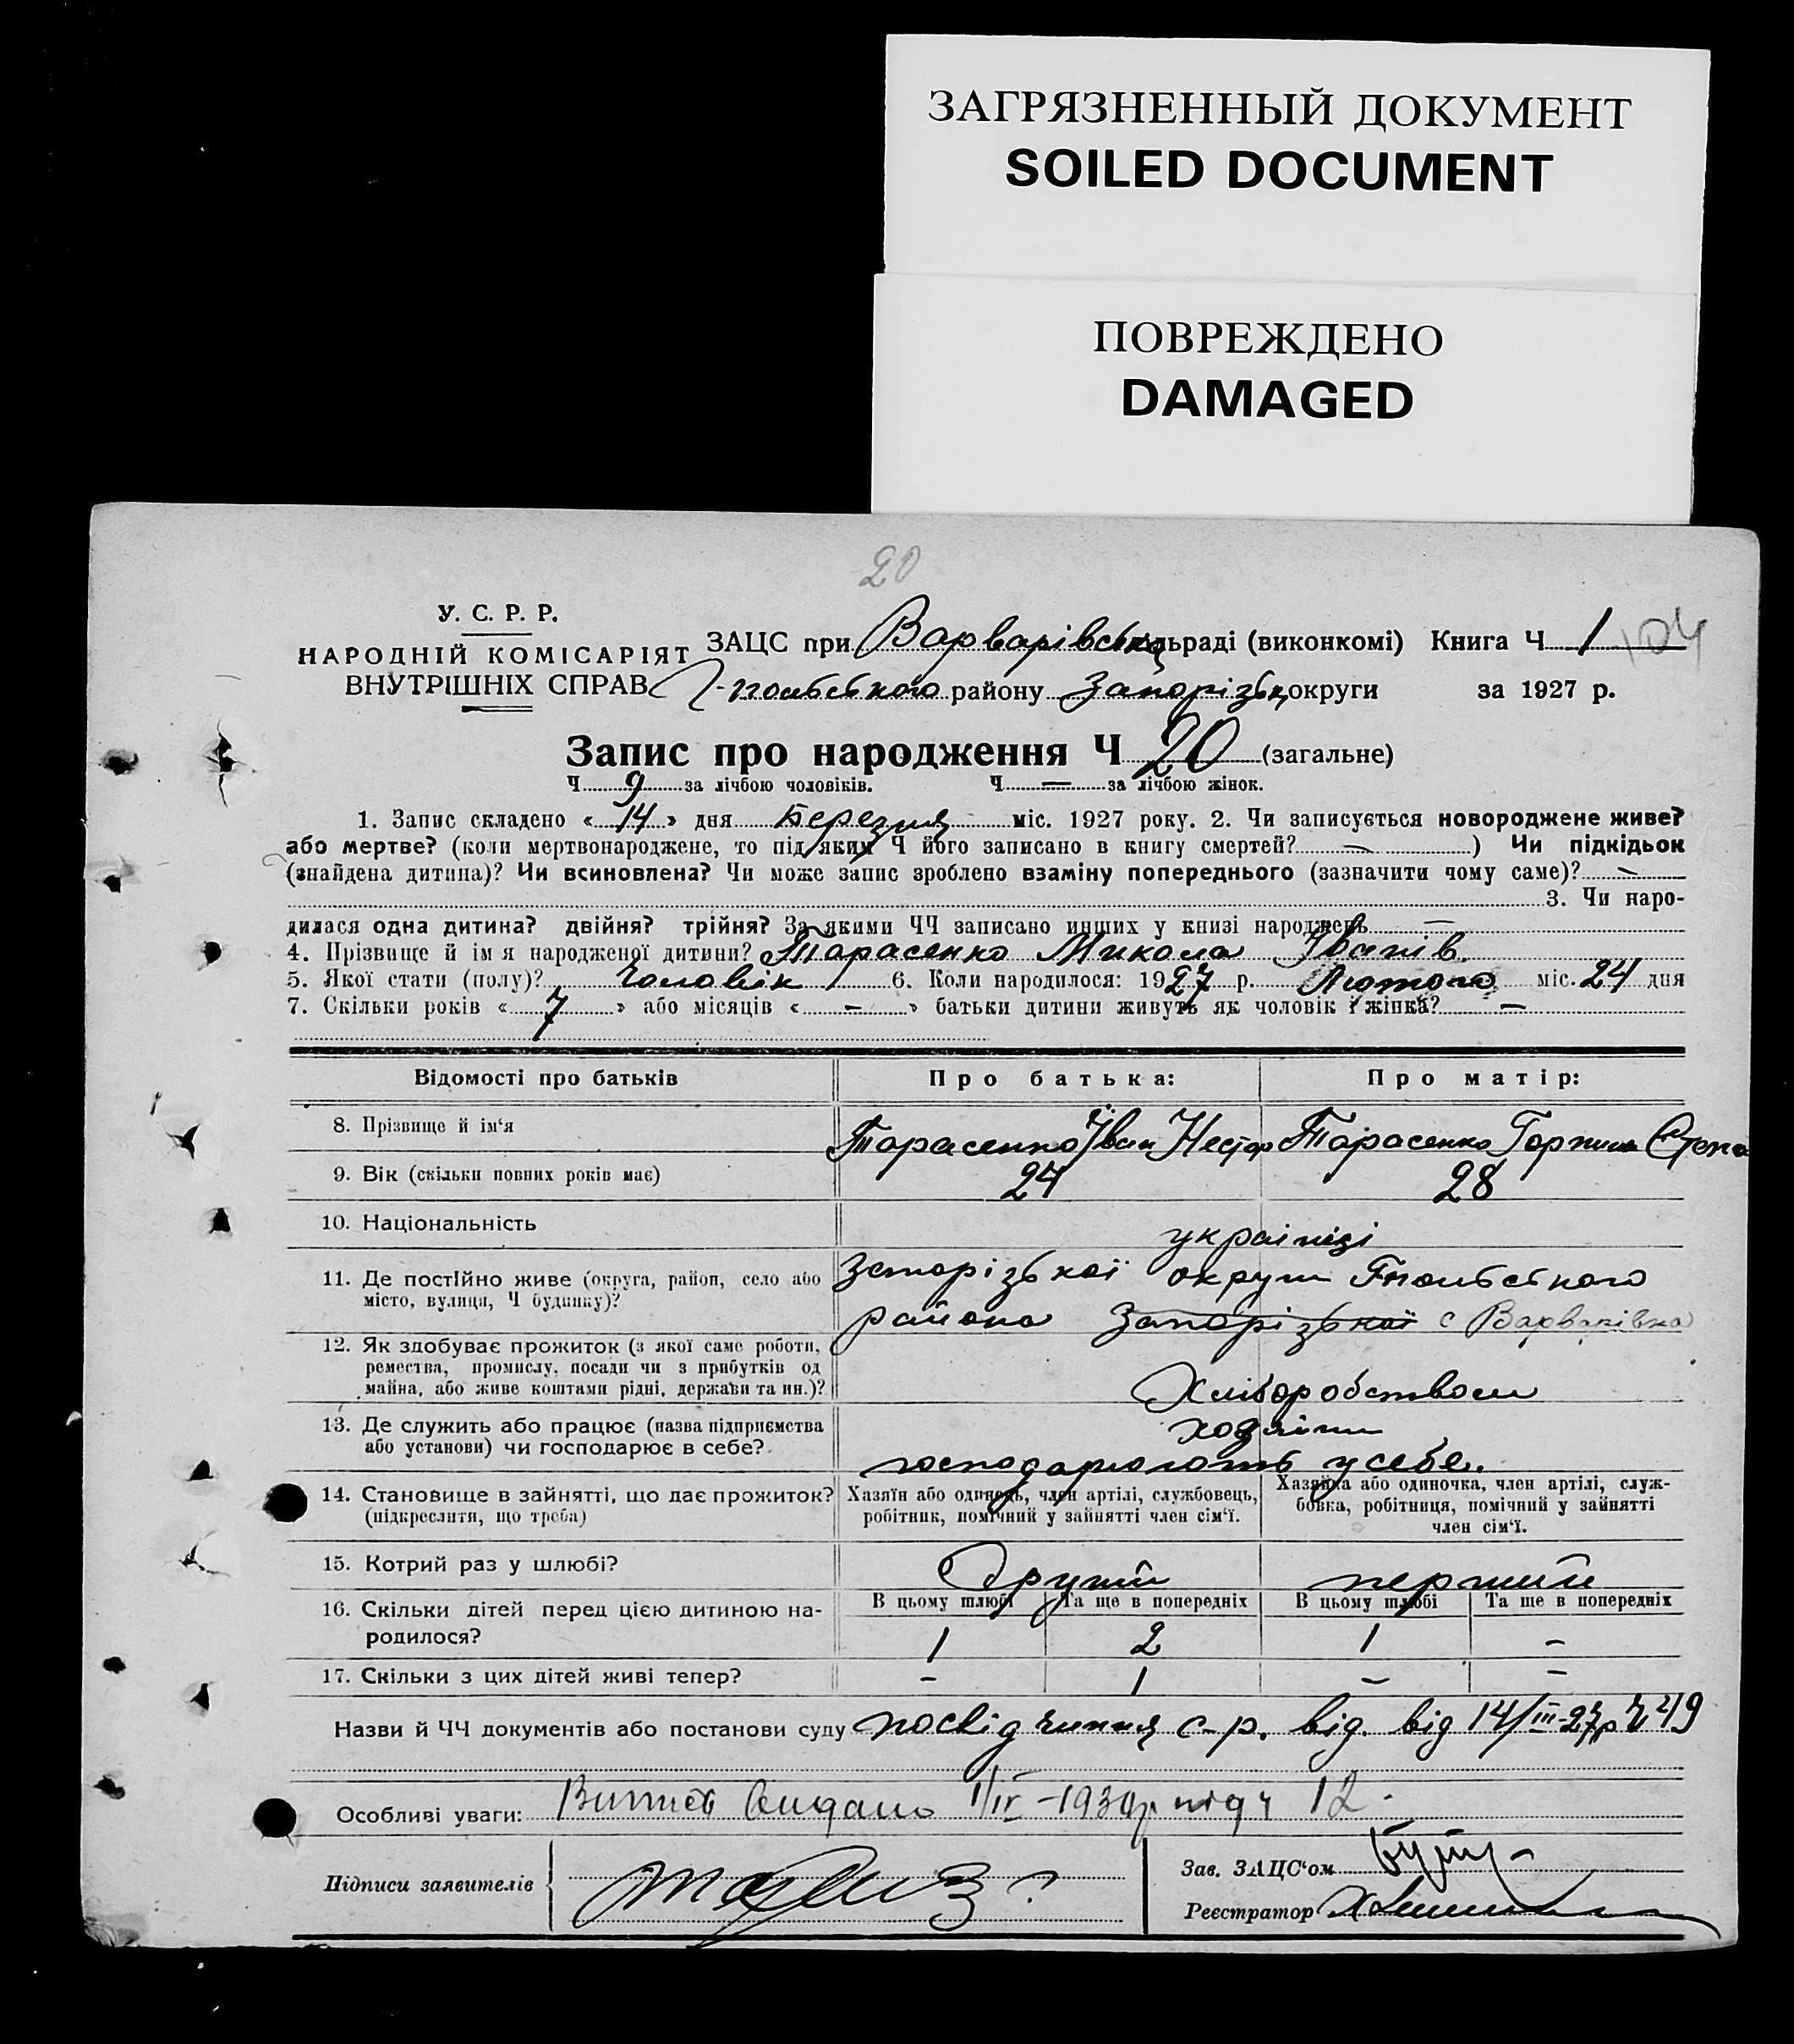 ЗАГРЯЗНЕННЫЙ ДОКУМЕНТ
SOILED DOCUMENT
ПОВРЕЖДЕНО
DAMAGED
20
У. С. Р. Р.
НАРОДНІЙ КОМІСАРІЯТ
ВНУТРІШНІХ СПРАВ
ЗАЦС при Варварівськ льраді (виконкомі) Книга Ч 1 104
району Запорізьк округи за 1927 р.
Запис про народження Ч 20 (загальне)
Ч 9 за лічбою чоловіків. Ч — за лічбою жінок.
1. Запис складено « 14 » дня Березня міс. 1927 року. 2. Чи записується новороджене живе?
або мертве? (коли мертвонароджене, то під яким Ч його записано в книгу смертей? — ) Чи підкідьок
(знайдена дитина)? Чи всиновлена? Чи може запис зроблено взаміну попереднього (зазначити чому саме)? —
3. Чи наро-
дилася одна дитина? двійня? трійня? За якими ЧЧ записано инших у книзі народжень —
4. Прізвище й ім я народженої дитини? Тарасенко Микола Іванів.
5. Якої стати (полу)? Чоловік 6. Коли народилося: 1927 р. Лютого міс. 24 дня
7. Скільки років « 7 » або місяців « – » батьки дитини живуть як чоловік і жінка? —
Відомості про батьків
Про батька:
Про матір:
8. Прізвище й ім‘я
Тарасенко Іван Нестор
Тарасенко Горпина Степа
9. Вік (скільки повних років має)
24
28
10. Національність
українці
11. Де постійно живе (округа, район, село або
місто, вулиця, Ч будинку)?
Запорізької округи Гнатівського
района Запорізької с Варварівка
12. Як здобуває прожиток (з якої само роботи,
ремества, промислу, посади чи з прибутків од
майна, або живе коштами рідні, держави та ин.)?
Хліборобством
13. Де служить або працює (назва підприємства
або установи) чи господарює в себе?
хозяїни
господарюють у себе.
14. Становище в зайнятті, що дає прожиток?
(підкреслити, що треба)
Хазяїн або одинець, член артілі, службовець,
робітник, помічний у зайнятті член сім‘ї.
Хазяйка або одиночка, член артілі, служ-
бовка, робітниця, помічний у зайнятті
член сім‘ї.
15. Котрий раз у шлюбі?
Другий
перший
16. Скільки дітей перед цією дитиною на-
родилося?
В цьому шлюбі
Та ще в попередніх
В цьому шлюбі
Та ще в попередніх
1
2
1
–
17. Скільки з цих дітей живі тепер?
–
1
–
–
Назви й ЧЧ документів або постанови суду посвідчення с-р. від. від 14/III-27р Ч 49
Особливі уваги: Витяг видано 1/IV-193 р під ч 12.
Підписи заявителів
Зав. ЗАЦС‘ом
Реєстратор